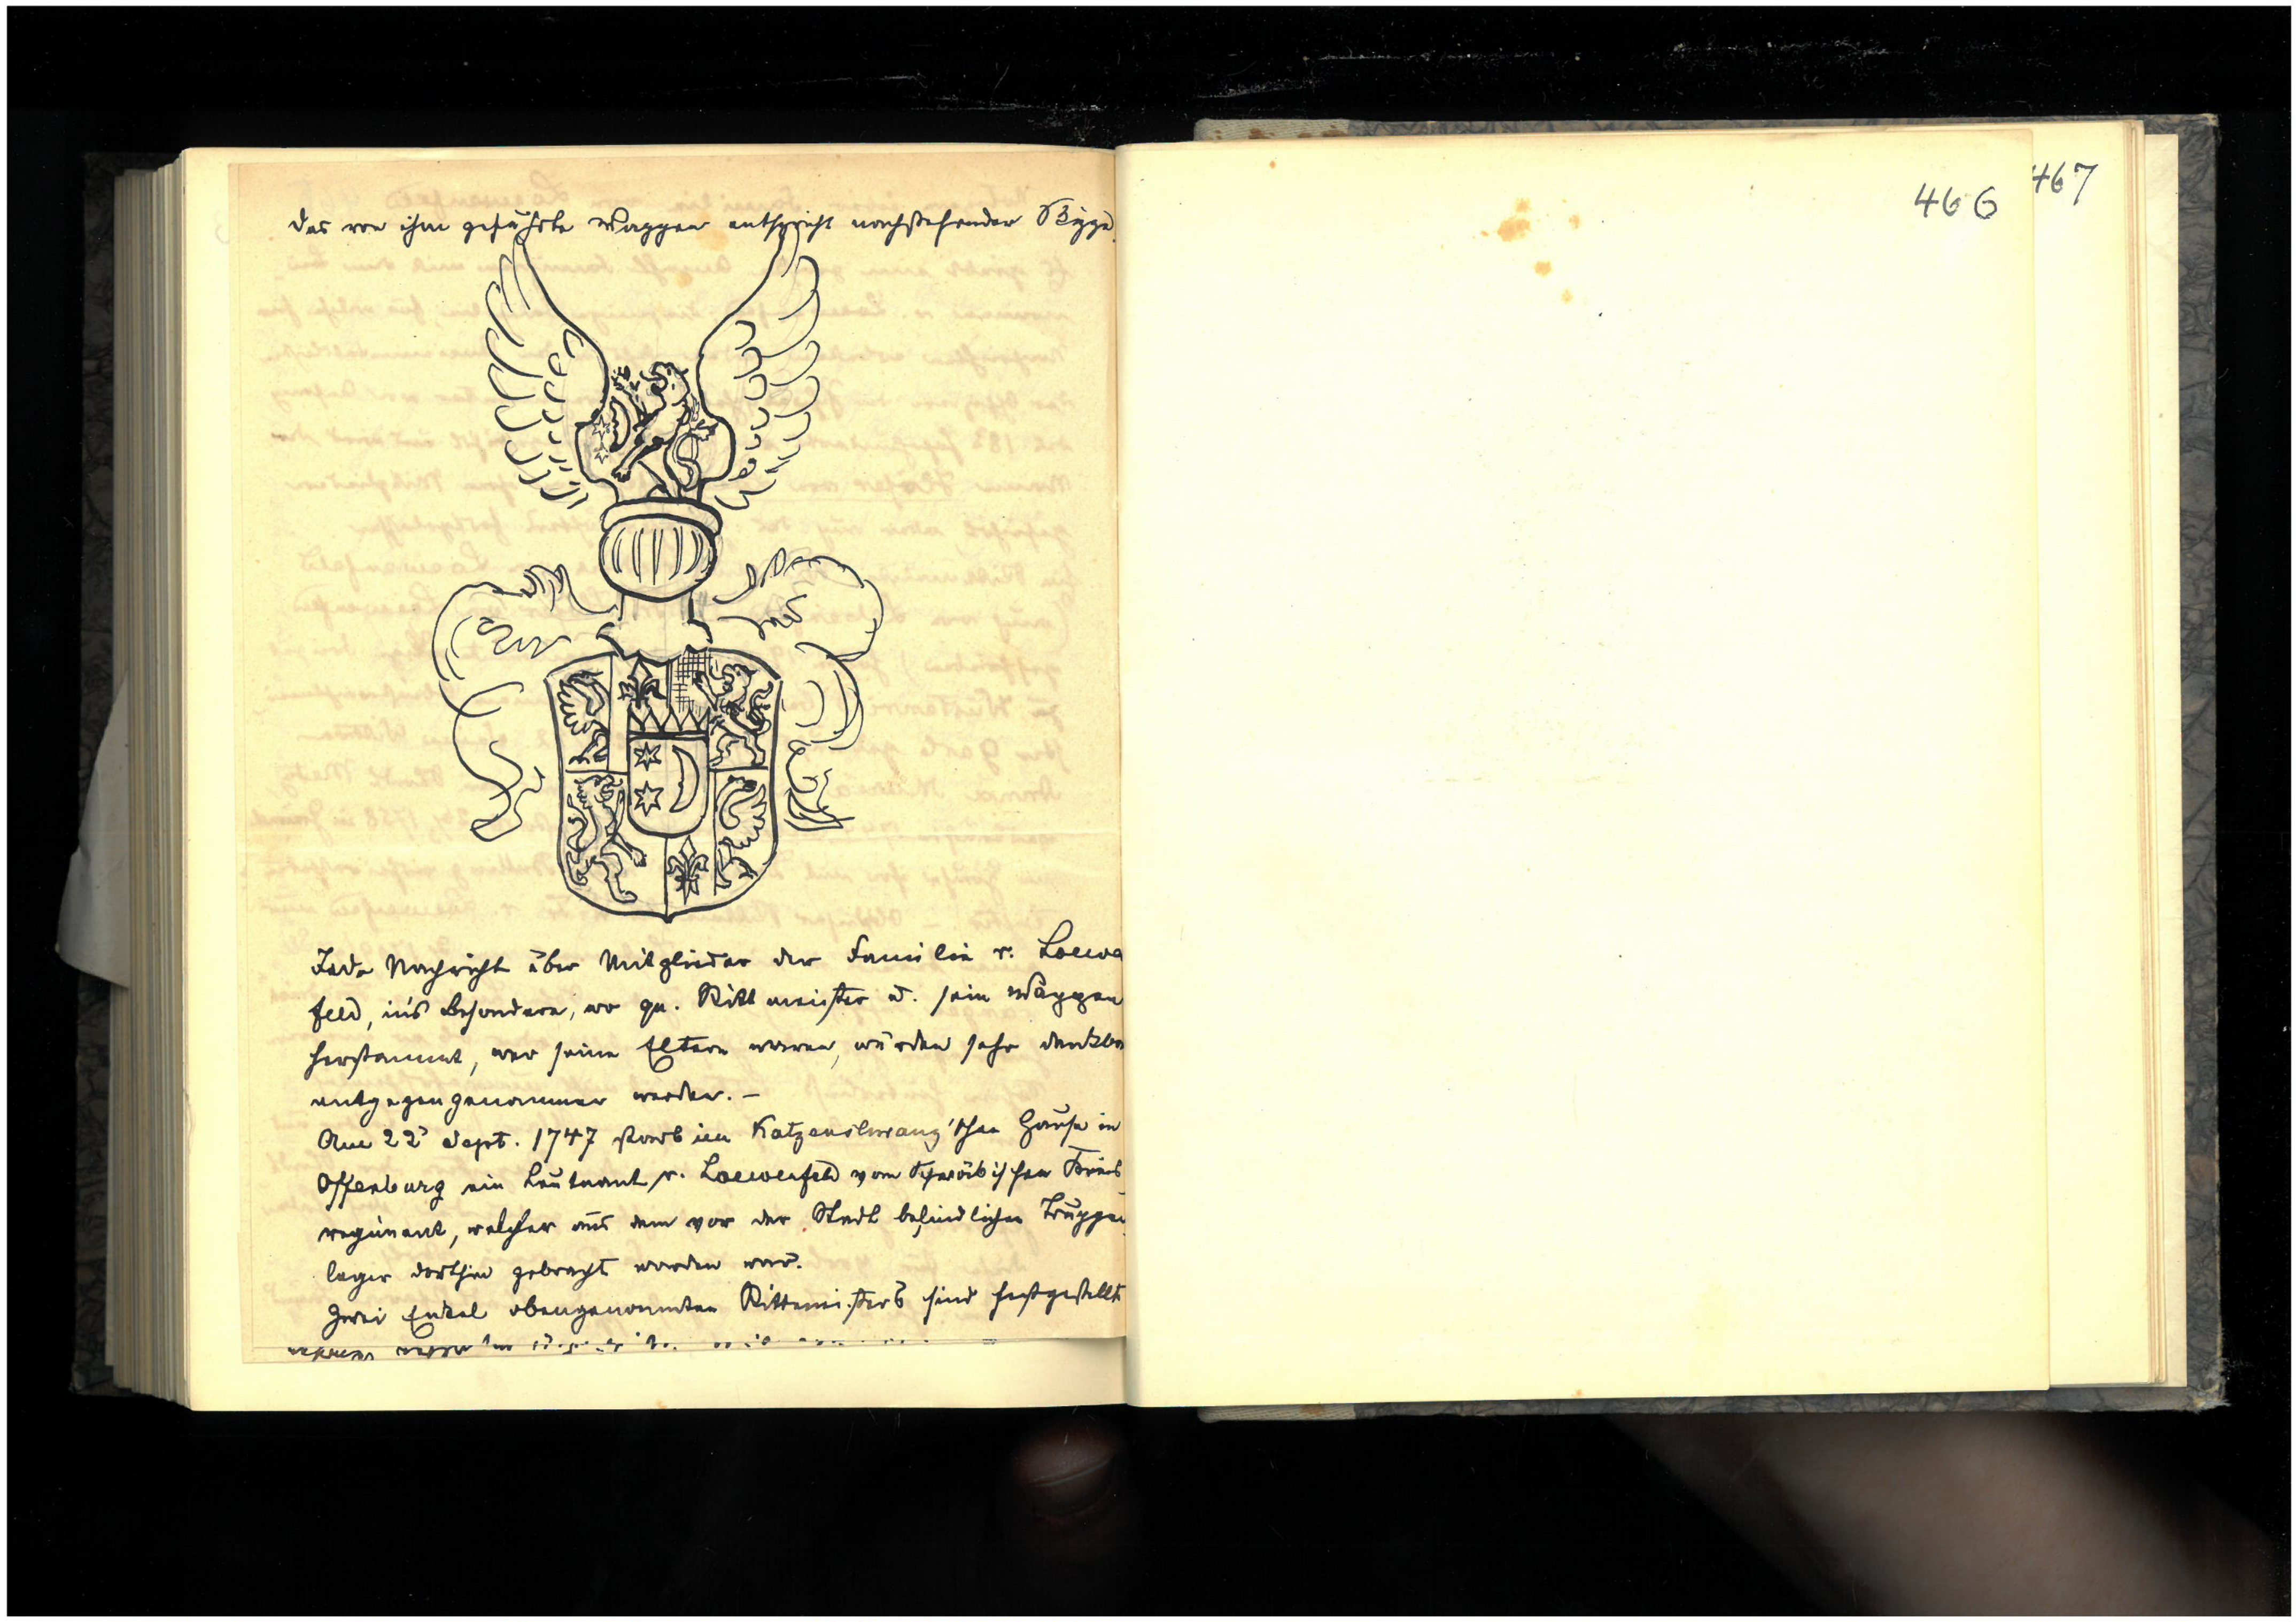 das von ihm geführte Wappen entspricht nachstehender Skizze.
Jede Nachricht über Mitglieder der Familie v. Loewe
feld, in's Besondere, wo qu. Rittmeister u. sein Wappen
herstammt, wer seine Eltern waren, würden sehr dankba
entgegengenommen werden. –
Am 22. Sept. 1747 starb im Katzenschwanz'schen Hause in
Offenburg ein Leutnant v. Loewenfeld vom Schwäbischen Kreis
regiment, welcher aus dem vor der Stadt befindlichen Truppen
lager dorthin gebracht worden war.
Zwei Enkel obengenannten Rittmeisters sind festgestellt
466
467